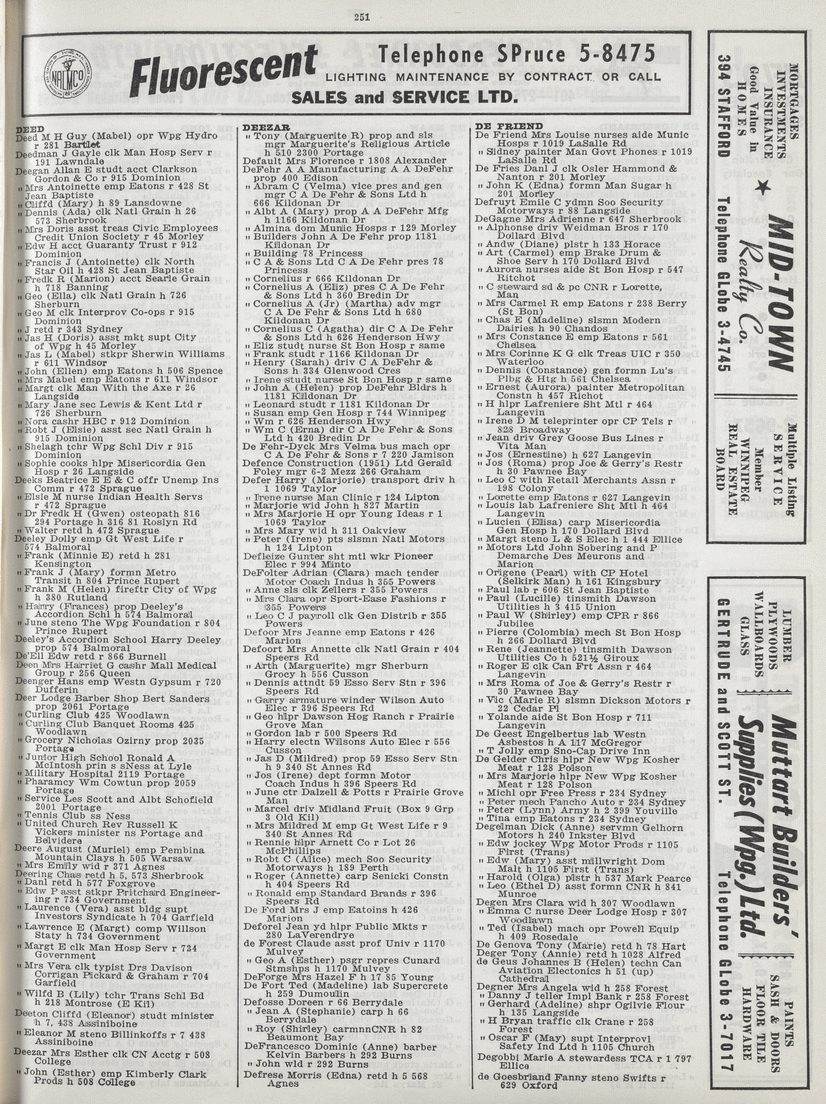 251
NALMCO
Fluorescent
Telephone SPruce 5-8475
LIGHTING MAINTENANCE BY CONTRACT OR CALL
SALES and SERVICE LTD.
DEED
Deed M H Guy (Mabel) opr Wpg Hydro
r 281 Bartlet
Deedman J Gayle clk Man Hosp Serv r
191 Lawndale
Deegan Allan E studt acct Clarkson
Gordon & Co r 915 Dominion
" Mrs Antoinette emp Eatons r 428 St
Jean Baptiste
" Cliffd (Mary) h 89 Lansdowne
" Dennis (Ada) clk Natl Grain h 26
573 Sherbrook
" Mrs Doris asst treas Civic Employees
Credit Union Society r 45 Morley
" Edw H acct Guaranty Trust r 912
Dominion
" Francis J (Antoinette) clk North
Star Oil h 428 St Jean Baptiste
" Fredk R (Marion) acct Searle Grain
h 718 Banning
" Geo (Ella) clk Natl Grain h 726
Sherburn
" Geo M clk Interprov Co-ops r 915
Dominion
" J retd r 343 Sydney
" Jas H (Doris) asst mkt supt City
of Wpg h 45 Morley
" Jas L (Mabel) stkpr Sherwin Williams
r 611 Windsor
" John (Ellen) emp Eatons h 506 Spence
" Mrs Mabel emp Eatons r 611 Windsor
" Margt clk Man With the Axe r 26
Langside
" Mary Jane sec Lewis & Kent Ltd r
726 Sherburn
" Nora cashr HBC r 912 Dominion
" Robt J (Elsie) asst sec Natl Grain h
915 Dominion
" Shelagh tchr Wpg Schl Div r 915
Dominion
" Sophie cooks hlpr Misericordia Gen
Hosp r 26 Langside
Deeks Beatrice E E & C offr Unemp Ins
Comm r 472 Sprague
" Elsie M nurse Indian Health Servs
r 472 Sprague
" Dr Fredk H (Gwen) osteopath 816
294 Portage h 316 81 Roslyn Rd
" Walter retd h 472 Sprague
Deeley Dolly emp Gt West Life r
574 Balmoral
" Frank (Minnie E) retd h 281
Kensington
" Frank J (Mary) formn Metro
Transit h 804 Prince Rupert
" Frank M (Helen) fireftr City of Wpg
h 380 Rutland
" Harry (Frances) prop Deeley's
Accordion Schl h 574 Balmoral
" June steno The Wpg Foundation r 804
Prince Rupert
Deeley's Accordion School Harry Deeley
prop 574 Balmoral
De'Ell Edw retd r 866 Burnell
Deen Mrs Harriet G cashr Mall Medical
Group r 256 Queen
Deenger Hans emp Westn Gypsum r 720
Dufferin
Deer Lodge Barber Shop Bert Sanders
prop 2061 Portage
" Curling Club 425 Woodlawn
" Curling Club Banquet Rooms 425
Woodlawn
" Grocery Nicholas Ozirny prop 2035
Portage
" Junior High School Ronald A
McIntosh prin s sNess at Lyle
" Military Hospital 2119 Portage
" Pharamcy Wm Cowtun prop 2059
Portage
" Service Les Scott and Albt Schofield
2001 Portage
" Tennis Club ss Ness
" United Church Rev Russell K
Vickers minister ns Portage and
Belvidere
Deere August (Muriel) emp Pembina
Mountain Clays h 505 Warsaw
" Mrs Emily wid r 371 Agnes
Deering Chas retd h 5, 573 Sherbrook
" Danl retd h 577 Foxgrove
" Edw P asst stkpr Pritchard Engineer-
ing r 734 Government
" Laurence (Vera) asst bldg supt
Investors Syndicate h 704 Garfield
" Lawrence E (Margt) comp Willson
Staty h 734 Government
" Margt E clk Man Hosp Serv r 734
Government
" Mrs Vera clk typist Drs Davison
Corrigan Pickard & Graham r 704
Garfield
" Wilfd B (Lily) tchr Trans Schl Bd
h 218 Montrose (E Kil)
Deeton Cliffd (Eleanor) studt minister
h 7, 438 Assiniboine
" Eleanor M steno Billinkoffs r 7 438
Assiniboine
Deezar Mrs Esther clk CN Acctg r 508
College
" John (Esther) emp Kimberly Clark
Prods h 508 College
DEEZAR
" Tony (Marguerite R) prop and sls
mgr Marguerite's Religious Article
h 510 2300 Portage
Default Mrs Florence r 1808 Alexander
DeFehr A A Manufacturing A A DeFehr
prop 400 Edison
" Abram C (Velma) vice pres and gen
mgr C A De Fehr & Sons Ltd h
666 Kildonan Dr
" Albt A (Mary) prop A A DeFehr Mfg
h 1166 Kildonan Dr
" Almina dom Munic Hosps r 129 Morley
" Builders John A De Fehr prop 1181
Kildonan Dr
" Building 78 Princess
" C A & Sons Ltd C A De Fehr pres 78
Princess
" Cornelius r 666 Kildonan Dr
" Cornelius A (Eliz) pres C A De Fehr
& Sons Ltd h 360 Bredin Dr
" Cornelius A (Jr) (Martha) adv mgr
C A De Fehr & Sons Ltd h 680
Kildonan Dr
" Cornelius C (Agatha) dir C A De Fehr
& Sons Ltd h 626 Henderson Hwy
" Eliz studt nurse St Bon Hosp r same
" Frank studt r 1166 Kildonan Dr
" Henry (Sarah) driv C A DeFehr &
Sons h 334 Glenwood Cres
" Irene studt nurse St Bon Hosp r same
" John A (Helen) prop DeFehr Bldrs h
1181 Kildonan Dr
" Leonard studt r 1181 Kildonan Dr
" Susan emp Gen Hosp r 744 Winnipeg
" Wm r 626 Henderson Hwy
" Wm C (Erna) dir C A De Fehr & Sons
Ltd h 420 Bredin Dr
De Fehr-Dyck Mrs Velma bus mach opr
C A De Fehr & Sons r 7 220 Jamison
Defence Construction (1951) Ltd Gerald
Foley mgr 6-2 Mezz 266 Graham
Defer Harry (Marjorie) transport driv h
1 1069 Taylor
" Irene nurse Man Clinic r 124 Lipton
" Marjorie wid John h 827 Martin
" Mrs Marjorie H opr Young Ideas r 1
1069 Taylor
" Mrs Mary wid h 311 Oakview
" Peter (Irene) pts slsmn Natl Motors
h 124 Lipton
Defleize Gunter sht mtl wkr Pioneer
Elec r 994 Minto
DeFolter Adrian (Clara) mach tender
Motor Coach Indus h 355 Powers
" Anne sls clk Zellers r 355 Powers
" Mrs Clara opr Sport-Ease Fashions r
355 Powers
" Leo C J payroll clk Gen Distrib r 355
Powers
Defoor Mrs Jeanne emp Eatons r 426
Marion
Defoort Mrs Annette clk Natl Grain r 404
Speers Rd
" Arth (Marguerite) mgr Sherburn
Grocy h 556 Cusson
" Dennis attndt 59 Esso Serv Stn r 396
Speers Rd
" Garry armature winder Wilson Auto
Elec r 396 Speers Rd
" Geo hlpr Dawson Hog Ranch r Prairie
Grove Man
" Gordon lab r 500 Speers Rd
" Harry electn Wilsons Auto Elec r 556
Cusson
" Jas D (Mildred) prop 59 Esso Serv Stn
h 9 340 St Annes Rd
" Jos (Irene) dept formn Motor
Coach Indus h 396 Speers Rd
" June ctr Dalzell & Potts r Prairie Grove
Man
" Marcel driv Midland Fruit (Box 9 Grp
3 Old Kil)
" Mrs Mildred M emp Gt West Life r 9
340 St Annes Rd
" Rennie hlpr Arnett Co r Lot 26
McPhillips
" Robt C (Alice) mech Soo Security
Motorways h 189 Perth
" Roger (Annette) carp Senicki Constn
h 404 Speers Rd
" Ronald emp Standard Brands r 396
Speers Rd
De Ford Mrs J emp Eatoins h 426
Marion
Deforel Jean yd hlpr Public Mkts r
280 LaVerendrye
de Forest Claude asst prof Univ r 1170
Mulvey
" Geo A (Esther) psgr repres Cunard
Stmshps h 1170 Mulvey
DeForge Mrs Hazel F h 17 85 Young
De Fort Ted (Madeline) lab Supercrete
h 259 Dumoulin
Defosse Doreen r 66 Berrydale
" Jean A (Stephanie) carp h 66
Berrydale
" Roy (Shirley) carmnnCNR h 82
Beaumont Bay
DeFrancesco Dominic (Anne) barber
Kelvin Barbers h 292 Burns
" John wld r 292 Burns
Defrese Morris (Edna) retd h 5 568
Agnes
DE FRIEND
De Friend Mrs Louise nurses aide Munic
Hosps r 1019 LaSalle Rd
" Sidney painter Man Govt Phones r 1019
LaSalle Rd
De Fries Danl J clk Osler Hammond &
Nanton r 201 Morley
" John K (Edna) formn Man Sugar h
201 Morley
Defruyt Emile C ydmn Soo Security
Motorways r 88 Langside
DeGagne Mrs Adrienne r 647 Sherbrook
" Alphonse driv Weidman Bros r 170
Dollard Blvd
" Andw (Diane) plstr h 133 Horace
" Art (Carmel) emp Brake Drum &
Shoe Serv h 170 Dollard Blvd
" Aurora nurses aide St Bon Hosp r 547
Ritchot
" C steward sd & pc CNR r Lorette,
Man
" Mrs Carmel R emp Eatons r 238 Berry
(St Bon)
" Chas E (Madeline) slsmn Modern
Dairies h 90 Chandos
" Mrs Constance E emp Eatons r 561
Chelsea
" Mrs Corinne K G clk Treas UIC r 350
Waterloo
" Dennis (Constance) gen formn Lu's
Plbg & Htg h 561 Chelsea
" Ernest (Aurora) painter Metropolitan
Constn h 457 Richot
" H hlpr Lafreniere Sht Mtl r 464
Langevin
" Irene D M teleprinter opr CP Tels r
828 Broadway
" Jean driv Grey Goose Bus Lines r
Vita Man
" Jos (Ernestine) h 627 Langevin
" Jos (Roma) prop Joe & Gerry's Restr
h 30 Pawnee Bay
" Leo C with Retail Merchants Assn r
198 Colony
" Lorette emp Eatons r 627 Langevin
" Louis lab Lafreniere Sht Mtl h 464
Langevin
" Lucien (Elisa) carp Misericordia
Gen Hosp h 170 Dollard Blvd
" Margt steno L & S Elec h 1 444 Ellice
" Motors Ltd John Sobering and P
Demarche Des Meurons and
Marion
" Origene (Pearl) with CP Hotel
(Selkirk Man) h 161 Kingsbury
" Paul lab r 606 St Jean Baptiste
" Paul (Lucille) tinsmith Dawson
Utilities h 3 415 Union
" Paul W (Shirley) emp CPR r 866
Jubilee
" Pierre (Colombia) mech St Bon Hosp
h 266 Dollard Blvd
" Rene (Jeannette) tinsmith Dawson
Utilities Co h 521½ Giroux
" Roger E clk Can Prt Assn r 464
Langevin
" Mrs Roma of Joe & Gerry's Restr r
30 Pawnee Bay
" Vic (Marie R) slsmn Dickson Motors r
22 Cedar Pl
" Yolande aide St Bon Hosp r 711
Langevin
De Geest Engelbertus lab Westn
Asbestos h A 117 McGregor
" T Jolly emp Sno-Cap Drive Inn
De Gelder Chris hlpr New Wpg Kosher
Meat r 128 Polson
" Mrs Marjorie hlpr New Wpg Kosher
Meat r 128 Polson
" Michl opr Free Press r 234 Sydney
" Peter mech Pancho Auto r 234 Sydney
" Peter (Lynn) Army h 2 399 Youville
" Tina emp Eatons r 234 Sydney
Degelman Dick (Anne) servmn Gelhorn
Motors h 240 Inkster Blvd
" Edw jockey Wpg Motor Prods r 1105
First (Trans)
" Edw (Mary) asst millwright Dom
Malt h 1105 First (Trans)
" Harold (Olga) plstr h 537 Mark Pearce
" Leo (Ethel D) asst formn CNR h 841
Munroe
Degen Mrs Clara wid h 307 Woodlawn
" Emma C nurse Deer Lodge Hosp r 307
Woodlawn
" Ted (Isabel) mach opr Powell Equip
h 409 Rosedale
De Genova Tony (Marie) retd h 78 Hart
Deger Tony (Annie) retd h 1028 Alfred
de Geus Johannes B (Helen) techn Can
Aviation Electonics h 51 (up)
Cathedral
Degner Mrs Angela wid h 258 Forest
" Danny J teller Impl Bank r 258 Forest
" Gerhard (Adeline) shpr Ogilvie Flour
h 135 Langside
" H Bryan traffic clk Crane r 258
Forest
" Oscar F (May) supt Interprovl
Safety Ind Ltd h 1105 Church
Degobbi Marie A stewardess TCA r 1 797
Ellice
de Goesbriand Fanny steno Swifts r
629 Oxford
MORTGAGES
INVESTMENTS
INSURANCE
Good Value in
HOMES
394 STAFFORD
★ MID-TOWN
Realty Co.
Telephone GLobe 3-4745
Multiple Listing
SERVICE
Member
WINNIPEG
REAL ESTATE
BOARD
LUMBER
PLYWOODS
WALLBOARDS
GLASS
Muttart Builders'
Supplies (Wpg.) Ltd.
PAINTS
SASH & DOORS
FLOOR TILE
HARDWARE
GERTRUDE and SCOTT ST.
Telephone GLobe 3-7017